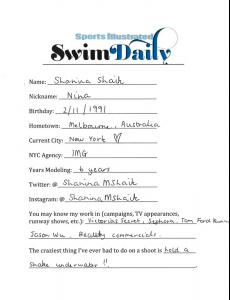 Sports Illustrated
SwimDaily
Name: Shanina Shaik
Nickname: Nina
Birthday: 2/11/1991
Hometown: Melbourne, Australia
Current City: New York ♡
NYC Agency: IMG
Years Modeling: 6 years
Twitter: @ Shanina MShaik
Instagram: @ Shanina MShaik
You may know my work in (campaigns, TV appearances,
runway shows, etc.): Victorias Secret, Sephora, Tom Ford
Jason Wu, Beauty commercials.
The craziest thing I've ever had to do on a shoot is hold a
snake underwater !!